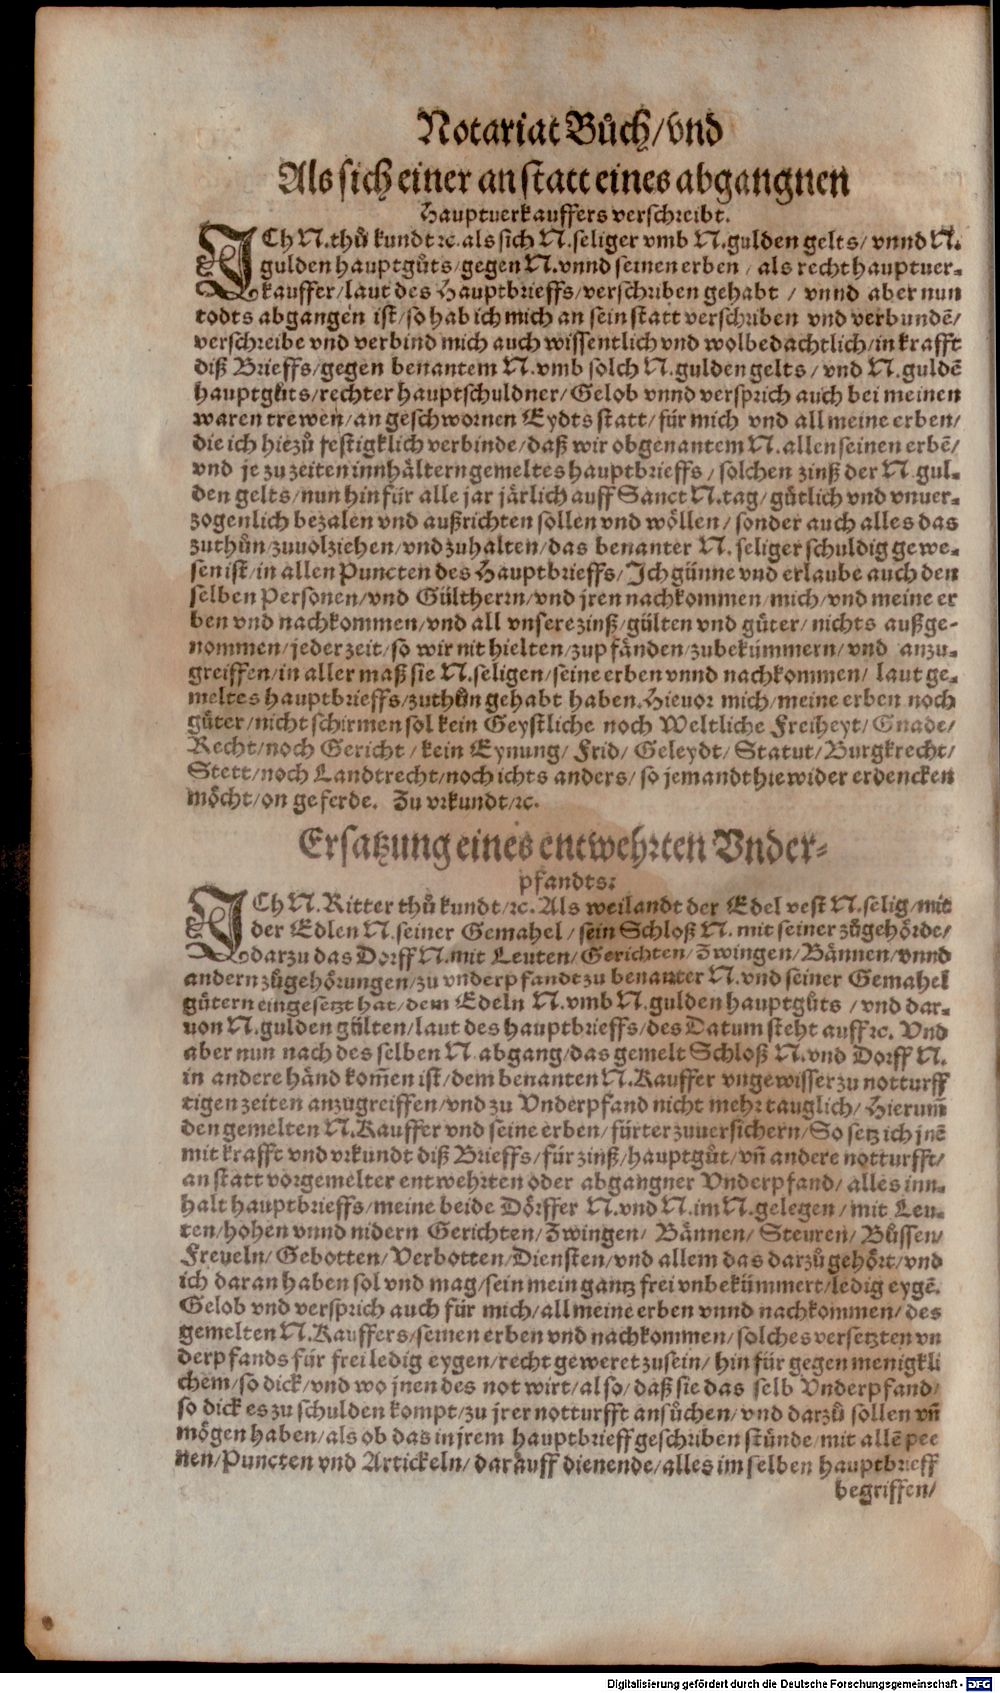 Notariat Bůch/vnd
Als sich einer an statt eines abgangnen
Hauptuerkauffers verschreibt.
ICh N.thů kundt ꝛc.als sich N.seliger vmb N.gulden gelts/ vnnd N.
gulden hauptgůts/gegen N.vnnd seinen erben/ als recht hauptuer-
kauffer/laut des Hauptbrieffs/verschriben gehabt / vnnd aber nun
todts abgangen ist/so hab ich mich an sein statt verschriben vnd verbundē/
verschreibe vnd verbind mich auch wissentlich vnd wolbedachtlich/in krafft
diß Brieffs/gegen benantem N.vmb solch N.gulden gelts/ vnd N.guldē
hauptgůts/rechter hauptschuldner/Gelob vnnd versprich auch bei meinen
waren trewen/an geschwornen Eydts statt/für mich vnd all meine erben/
die ich hiezů festigklich verbinde/daß wir obgenantem N.allen seinen erbē/
vnd je zu zeiten innhältern gemeltes hauptbrieffs/ solchen zinß der N.gul-
den gelts/nun hin für alle jar järlich auff Sanct N.tag/gütlich vnd vnuer-
zogenlich bezalen vnd außrichten sollen vnd wöllen/ sonder auch alles das
zuthůn/zuuolziehen/vnd zuhalten/das benanter N. seliger schuldig gewe-
sen ist/in allen Puncten des Hauptbrieffs/Ich günne vnd erlaube auch den
selben Personen/vnd Gültherrn/vnd jren nachkommen/mich/vnd meine er
ben vnd nachkommen/vnd all vnsere zinß/gülten vnd güter/ nichts außge-
nommen/jeder zeit/so wir nit hielten/zu pfänden/zubekümmern/ vnd anzu-
greiffen/in aller maß sie N.seligen/seine erben vnnd nachkommen/ laut ge-
meltes hauptbrieffs/zuthůn gehabt haben.Hieuor mich/meine erben noch
güter/nicht schirmen sol kein Geystliche noch Weltliche Freiheyt/Gnade/
Recht/noch Gericht/kein Eynung/ Frid/ Geleydt/ Statut/Burgkrecht/
Stett/noch Landtrecht/noch ichts anders/ so jemandt hiewider erdencken
möcht/on geferde. Zu vrkundt/ꝛc.
Ersatzung eines entwehrten Vnder-
pfandts:
ICh N.Ritter thů kundt/ꝛc.Als weilandt der Edel vest N.selig/mit
der Edlen N.seiner Gemahel/ sein Schloß N. mit seiner zůgehörde/
darzu das Dorff N.mit Leuten/Gerichten/Zwingen/Bännen/vnnd
andern zůgehörungen/zu vnderpfandt zu benanter N.vnd seiner Gemahel
gütern eingesetzt hat/dem Edeln N.vmb N.gulden hauptgůts / vnd dar-
uon N.gulden gülten/laut des hauptbrieffs/des Datum steht auff ꝛc. Vnd
aber nun nach des selben N abgang/das gemelt Schloß N.vnd Dorff N.
in andere händ kom̄en ist/dem benanten N.Kauffer vngewisser zu notturff
tigen zeiten anzugreiffen/vnd zu Vnderpfand nicht mehr tauglich/ Hierum̄
den gemelten N.Kauffer vnd seine erben/fürter zuuersichern/So setz ich jnē
mit krafft vnd vrkundt diß Brieffs/für zinß/hauptgůt/vn̄ andere notturfft/
an statt vorgemelter entwehrten oder abgangner Vnderpfand/ alles inn-
halt hauptbrieffs/meine beide Dörffer N.vnd N.im N.gelegen/mit Leu-
ten/hohen vnnd nidern Gerichten/Zwingen/ Bännen/ Steuren/ Bůssen/
Freueln/Gebotten/Verbotten/Diensten/vnd allem das darzů gehört/vnd
ich daran haben sol vnd mag/sein mein gantz frei vnbekümmert/ledig eygē.
Gelob vnd versprich auch für mich/all meine erben vnnd nachkommen/des
gemelten N.Kauffers/seinen erben vnd nachkommen/ solches versetzten vn
derpfands für frei ledig eygen/recht geweret zusein/ hin für gegen menigkli
chem/so dick/vnd wo jnen des not wirt/also/daß sie das selb Vnderpfand/
so dick es zu schulden kompt/zu jrer notturfft ansůchen/vnd darzů sollen vn̄
mögen haben/als ob das in jrem hauptbrieff geschriben stünde/mit allē pee
nen/Puncten vnd Artickeln/darauff dienende/alles im selben hauptbrieff
begriffen/
Digitalisierung gefördert durch die Deutsche Forschungsgemeinschaft - DFG